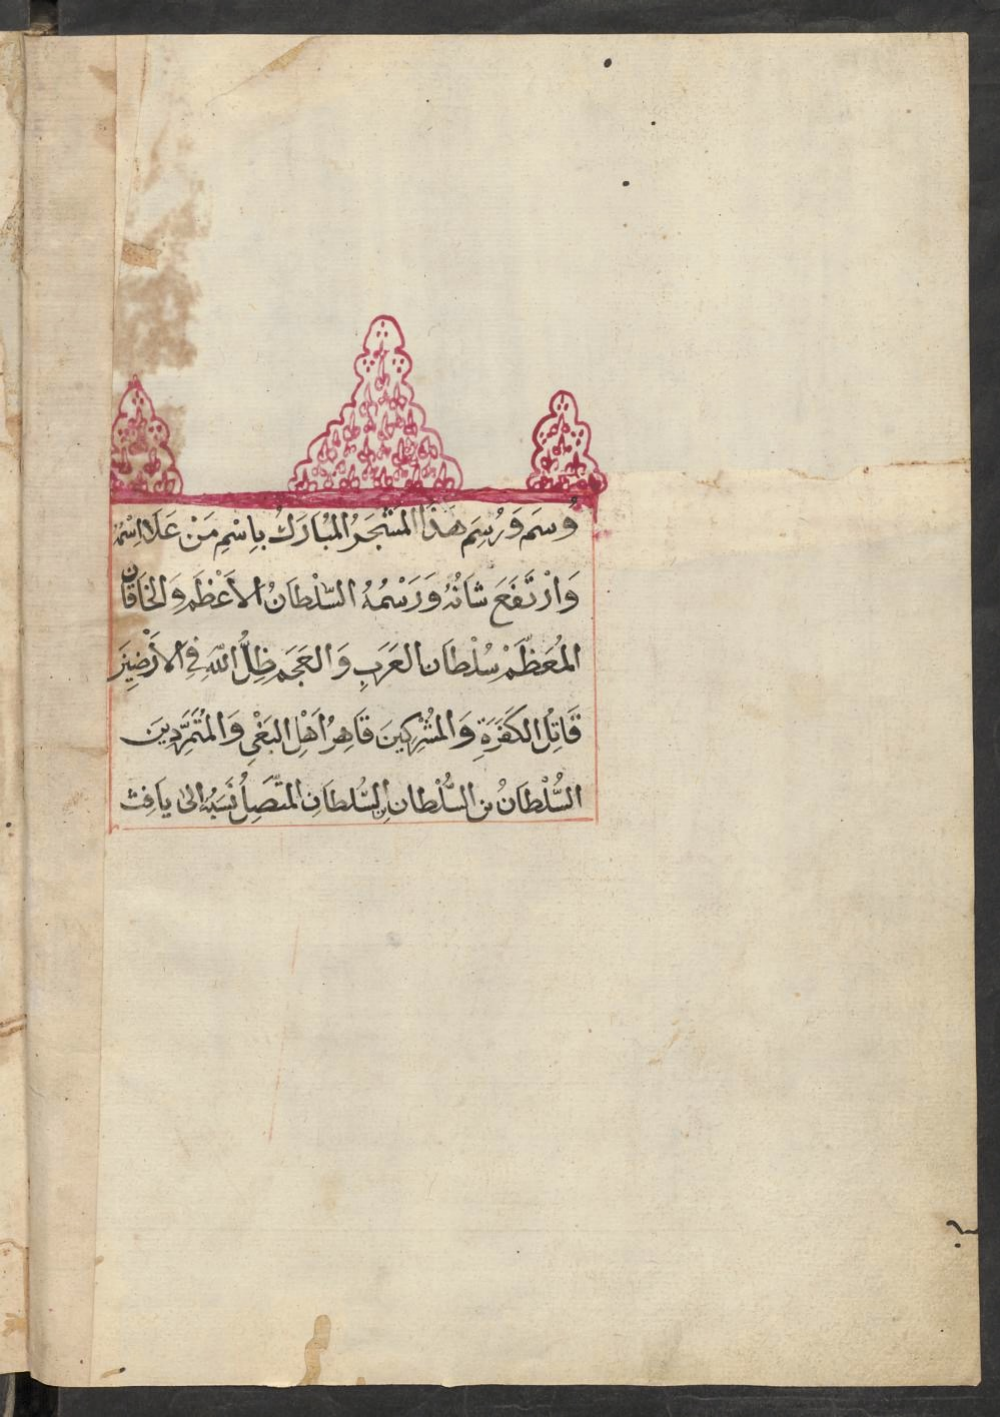 وُسِمَ وَرُسِمَ هَذَا المُشَجَّرُ المُبَارَكُ بِاسْمِ مَنْ عَلَا اِسْمُهُ
وَارْتَفَعَ شَانُهُ وَرَسْمُهُ السُّلْطَانُ الأَعْظَمِ وَالخَاقَان
المُعَظَّمْ سُلْطَان العَرَبِ وَالعَجَم ظِلُّ اللّٰهِ فِي الأَرْضِينَ
قَاتِلُ الكَفَرَةِ وَالمُشْرِكِينَ قَاهِرُ اَهْلِ البَغْيِ وَالمُتَمَرِّدِينَ
السُّلْطَانُ بن السُّلْطَان اِبن السُّلطَانِ المتَّصِلُ نَسَبُهُ الىٰ يَافِث